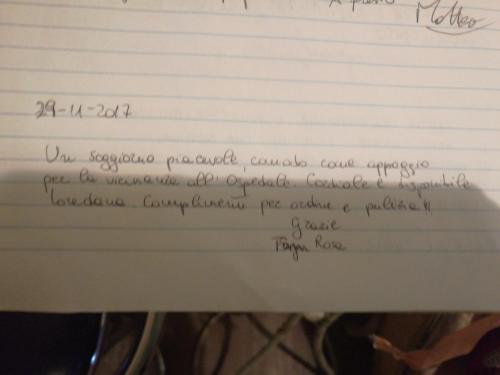 A presto
Matteo
29-11-2017
Un soggiorno piacevole, comodo come appoggio
per la vicinanza all'Ospedale. Cordiale e disponibile
Loredana. Complimenti per ordine e pulizia!!
Grazie
Rosa